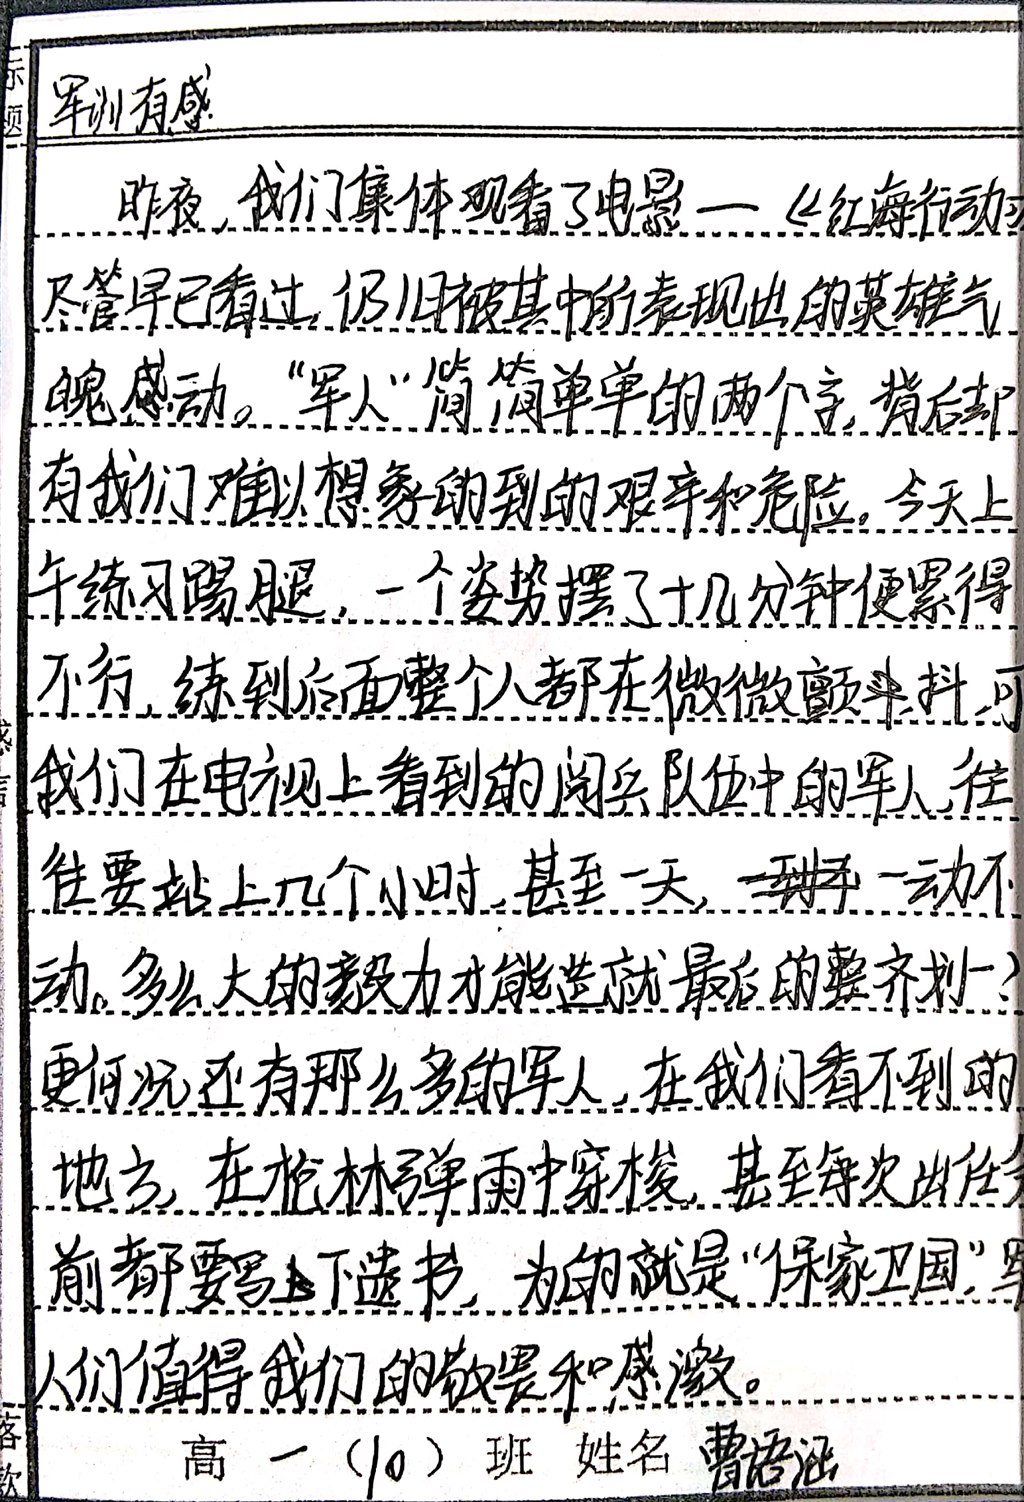 标题
军训有感
昨夜,我们集体观看了电影一《红海行动》
尽管早已看过,仍旧被其中所表现出的英雄气
魄感动。“军人”简简单单的两个字,背后却
有我们难以想象的到的艰辛和危险。今天上
午练习踢腿,一个姿势摆了十几分钟便累得
不行,练到后面整个人都在微微颤抖,可
我们在电视上看到的阅兵队伍中的军人,往
往要站上几个小时,甚至一天,一动不
动。多么大的毅力才能造就最后的整齐划一?
更何况还有那么多的军人,在我们看不到的
地方,在枪林弹雨中穿梭,甚至每次出任务
前都要写下遗书,为的就是“保家卫国”,军
人们值得我们的敬畏和感激。
感言
落款
高一(10)班 姓名 曹语涵